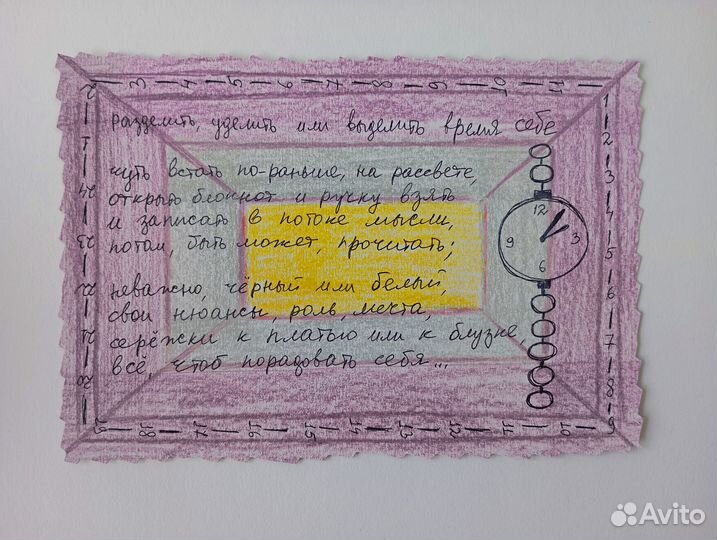 разделить, уделить или выделить время себе
чуть встать по-раньше, на рассвете,
открыть блокнот и ручку взять
и записать в потоке мысли,
потом, быть может, прочитать;
неважно, чёрный или белый,
свои нюансы, роль, мечта,
серёжки к платью или к блузке,
всё, чтоб порадовать себя...
12
3
6
9
2 3 4 5 6 7 8 9 10 11
1 2 3 4 5 6 7 8 9
1 24 23 22 21 20
19 18 17 16 15 14 13 12 11 10
Avito